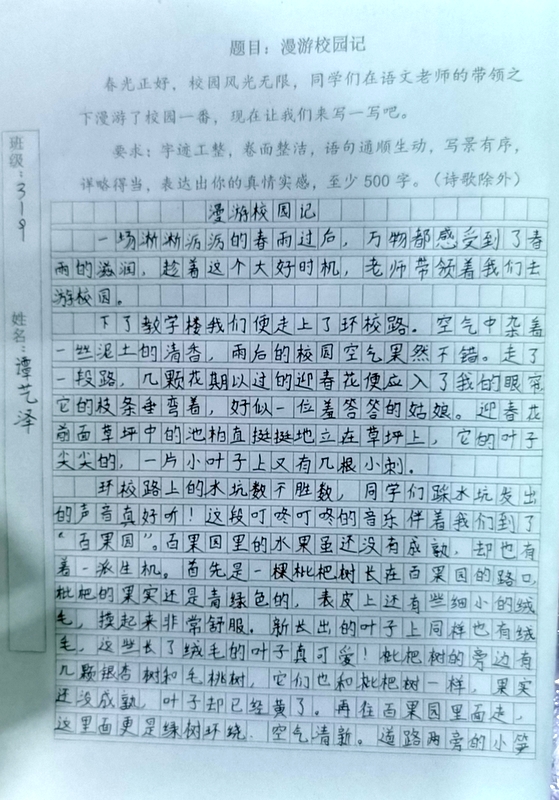 题目：漫游校园记
春光正好，校园风光无限，同学们在语文老师的带领之
下漫游了校园一番，现在让我们来写一写吧。
要求：字迹工整，卷面整洁，语句通顺生动，写景有序，
详略得当，表达出你的真情实感，至少500字。（诗歌除外）
班级：319
姓名：谭艺泽
漫游校园记
一场淅淅沥沥的春雨过后，万物都感受到了春
雨的滋润，趁着这个大好时机，老师带领着我们去
游校园。
下了教学楼我们便走上了环校路。空气中杂着
一丝泥土的清香，雨后的校园空气果然不错。走了
一段路，几颗花期以过的迎春花便应入了我的眼帘
它的枝条垂弯着，好似一位羞答答的姑娘。迎春花
前面草坪中的池柏直挺挺地立在草坪上，它的叶子
尖尖的，一片小叶子上又有几根小刺。
环校路上的水坑数不胜数，同学们踩水坑发出
的声音真好听！这段叮咚叮咚的音乐伴着我们到了
“百果园”。百果园里的水果虽还没有成熟，却也有
着一派生机。首先是一棵枇杷树长在百果园的路口，
枇杷的果实还是青绿色的，表皮上还有些细小的绒
毛，摸起来非常舒服。新长出的叶子上同样也有绒
毛，这些长了绒毛的叶子真可爱！枇杷树的旁边有
几颗银杏树和毛桃树，它们也和枇杷树一样，果实
还没成熟，叶子却已经黄了。再往百果园里面走，
这里面更是绿树环绕，空气清新。道路两旁的小笋